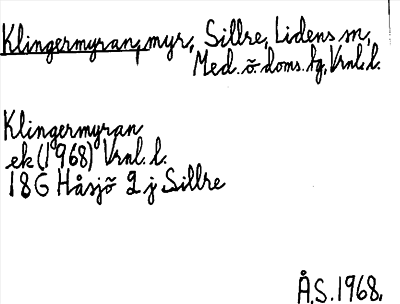 Klingermyran, myr, Sillre, Lidens sn,
Med. ö. doms. hg, Vrnl. l.
Klingermyran
ek (1968) Vrnl. l.
18G Håsjö 2 j Sillre
Å.S. 1968.